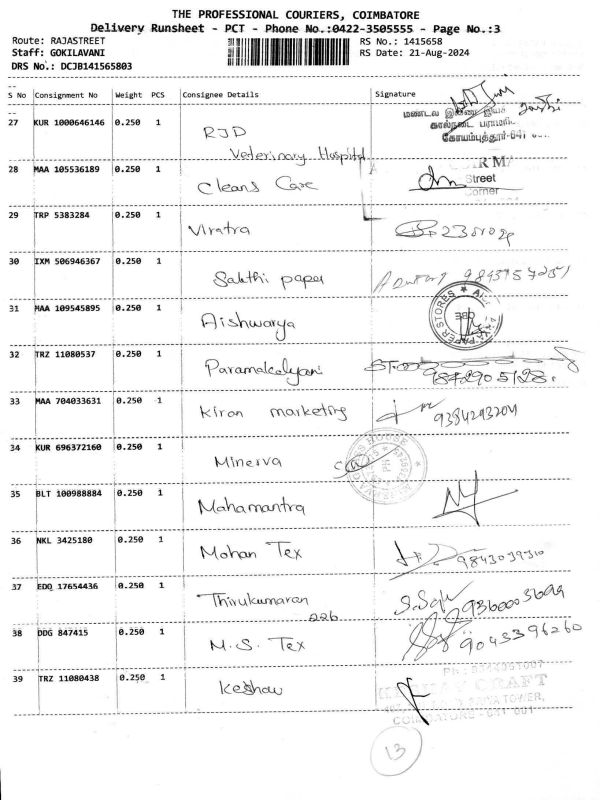 THE PROFESSIONAL COURIERS, COIMBATORE
Delivery Runsheet - PCT - Phone No.:0422-3505555 - Page No.:3
Route: RAJASTREET RS No.: 1415658
Staff: GOKILAVANI RS Date: 21-Aug-2024
DRS No.: DCJB141565803
S No Consignment No Weight PCS Consignee Details Signature
27 KUR 1000646146 0.250 1 RJD
Veterinary Hospital
கோயம்புத்தூர்-641
28 MAA 105536189 0.250 1 Cleans Care
Street
Corner
29 TRP 5383284 0.250 1 Viratra
30 IXM 506946367 0.250 1 Sakthi paper
31 MAA 109545895 0.250 1 Aishwarya
PAPER STORES
CBE
32 TRZ 11080537 0.250 1 Paramakalyani
9842905128
33 MAA 704033631 0.250 1 Kiran marketing 9384293204
34 KUR 696372160 0.250 1 Minerva
HOUSE
35 BLT 100988884 0.250 1 Mahamantra
36 NKL 3425180 0.250 1 Mohan Tex 9843039310
37 EDO 17654436 0.250 1 Thirukumaran
226
38 DDG 847415 0.250 1 M.S. Tex 9043396260
39 TRZ 11080438 0.250 1 Keshav
CRAFT
TOWER,
13